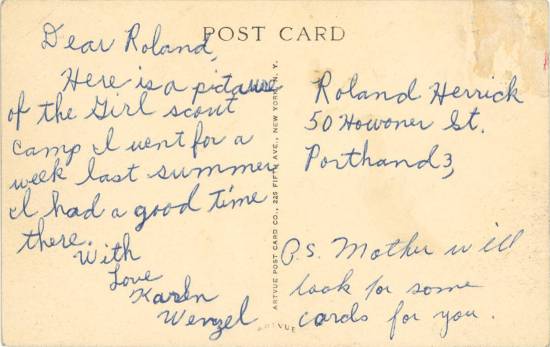 POST CARD
Dear Roland,
Here is a pictaure
of the Girl scout
camp I went for a
week last summer
I had a good time
there.
With
Love
Karen
Wenzel
ARTVUE POST CARD CO., 225 FIFTH AVE., NEW YORK, N. Y.
ARTVUE
Roland Herrick
50 Howoner St.
Porthand 3,
P.s. Mother will
look for some
cards for you.